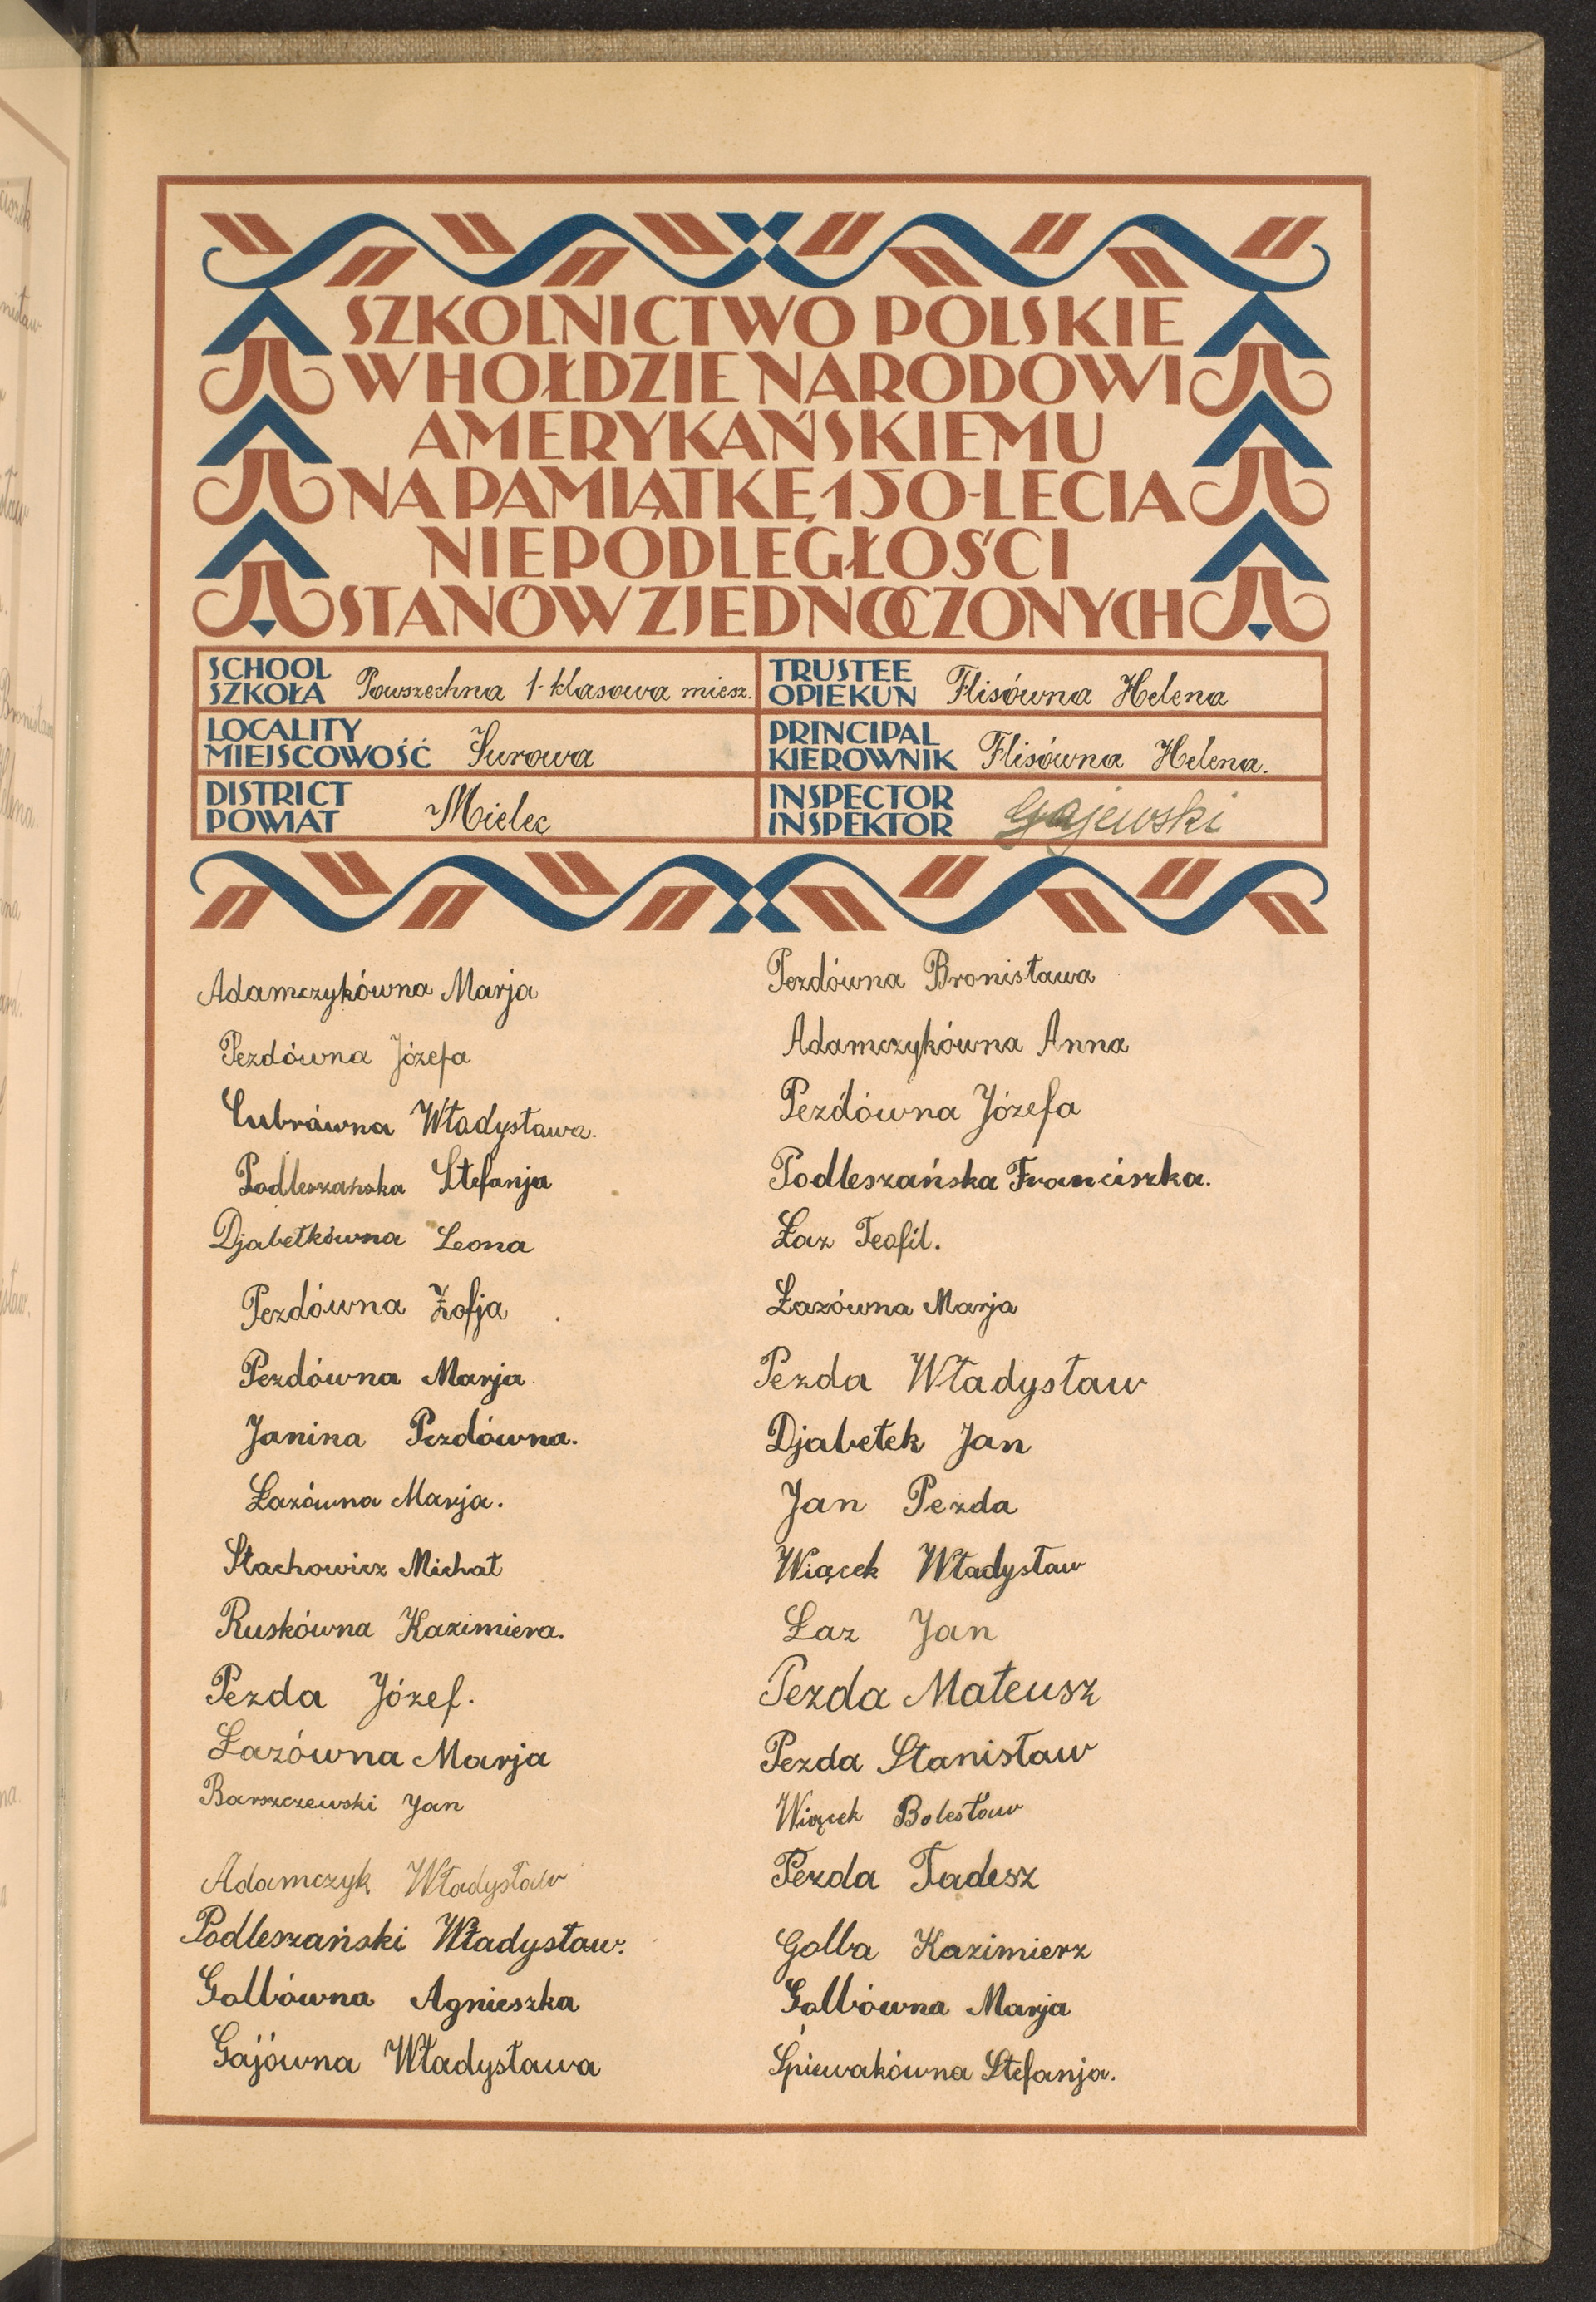 SZKOLNICTWO POLSKIE
W HOŁDZIE NARODOWI
AMERYKAŃSKIEMU
NA PAMIĄTKĘ 150-LECIA
NIEPODLEGŁOŚCI
STANÓW ZJEDNOCZONYCH
SCHOOL
SZKOŁA Powszechna 1-klasowa miesz.
TRUSTEE
OPIEKUN Flisówna Helena
LOCALITY
MIEJSCOWOŚĆ Surowa
PRINCIPAL
KIEROWNIK Flisówna Helena.
DISTRICT
POWIAT Mielec
INSPECTOR
INSPEKTOR Gajewski
Adamczykówna Marja
Pezdówna Józefa
Cubrówna Władysława.
Podleszańska Stefanja
Djabełkówna Leona
Pezdówna Zofja
Pezdówna Marja
Janina Pezdówna.
Łazówna Marja.
Stachowicz Michał
Ruskówna Kazimiera.
Pezda Józef.
Łazówna Marja
Barszczewski Jan
Adamczyk Władysław
Podleszański Władysław.
Golbówna Agnieszka
Gajówna Władysława
Pezdówna Bronisława
Adamczykówna Anna
Pezdówna Józefa
Podleszańska Franciszka.
Łaz Teofil.
Łazówna Marja
Pezda Władysław
Djabełek Jan
Jan Pezda
Wiącek Władysław
Łaz Jan
Pezda Mateusz
Pezda Stanisław
Wiącek Bolesław
Pezda Tadesz
Golba Kazimierz
Golbówna Marja
Śpiewakówna Stefanja.